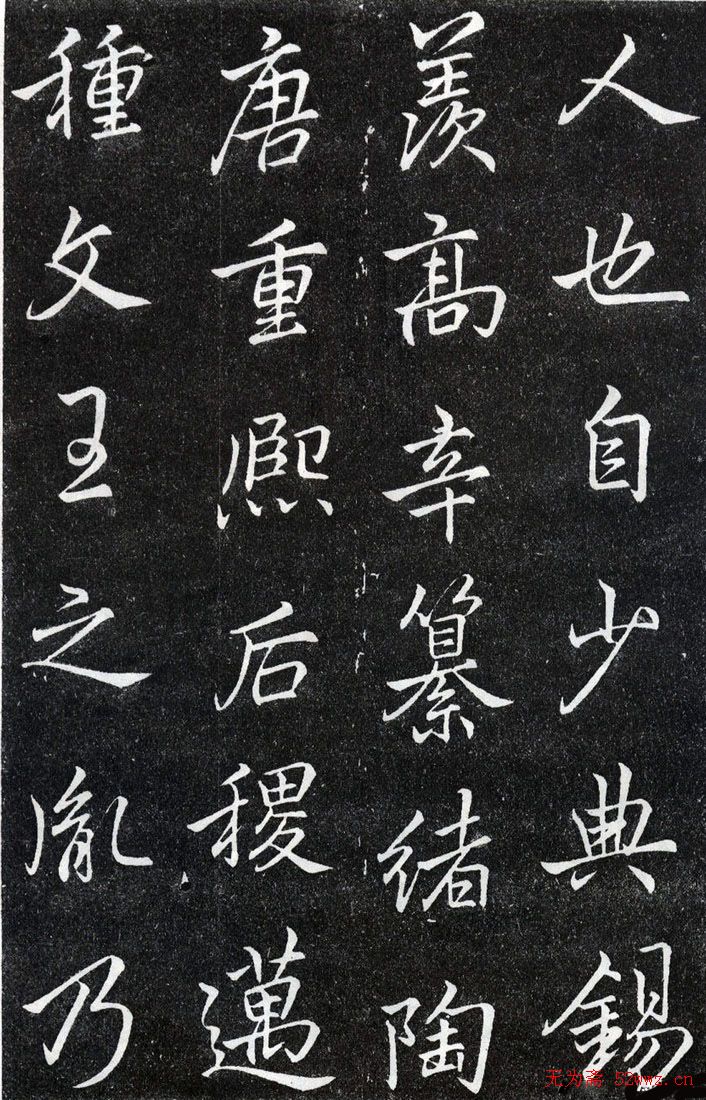 人也自少典錫
羨高辛纂緒陶
唐重熙后稷邁
種文王之胤乃
无为斋 52wwz.cn